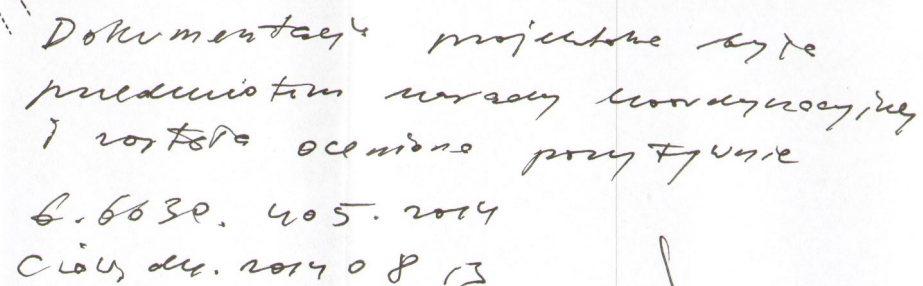 Dokumentacja projektowa była
przedmiotem narady koordynacyjnej
i została oceniona pozytywnie
G.6630.405.2014
dn. 2014 08 13